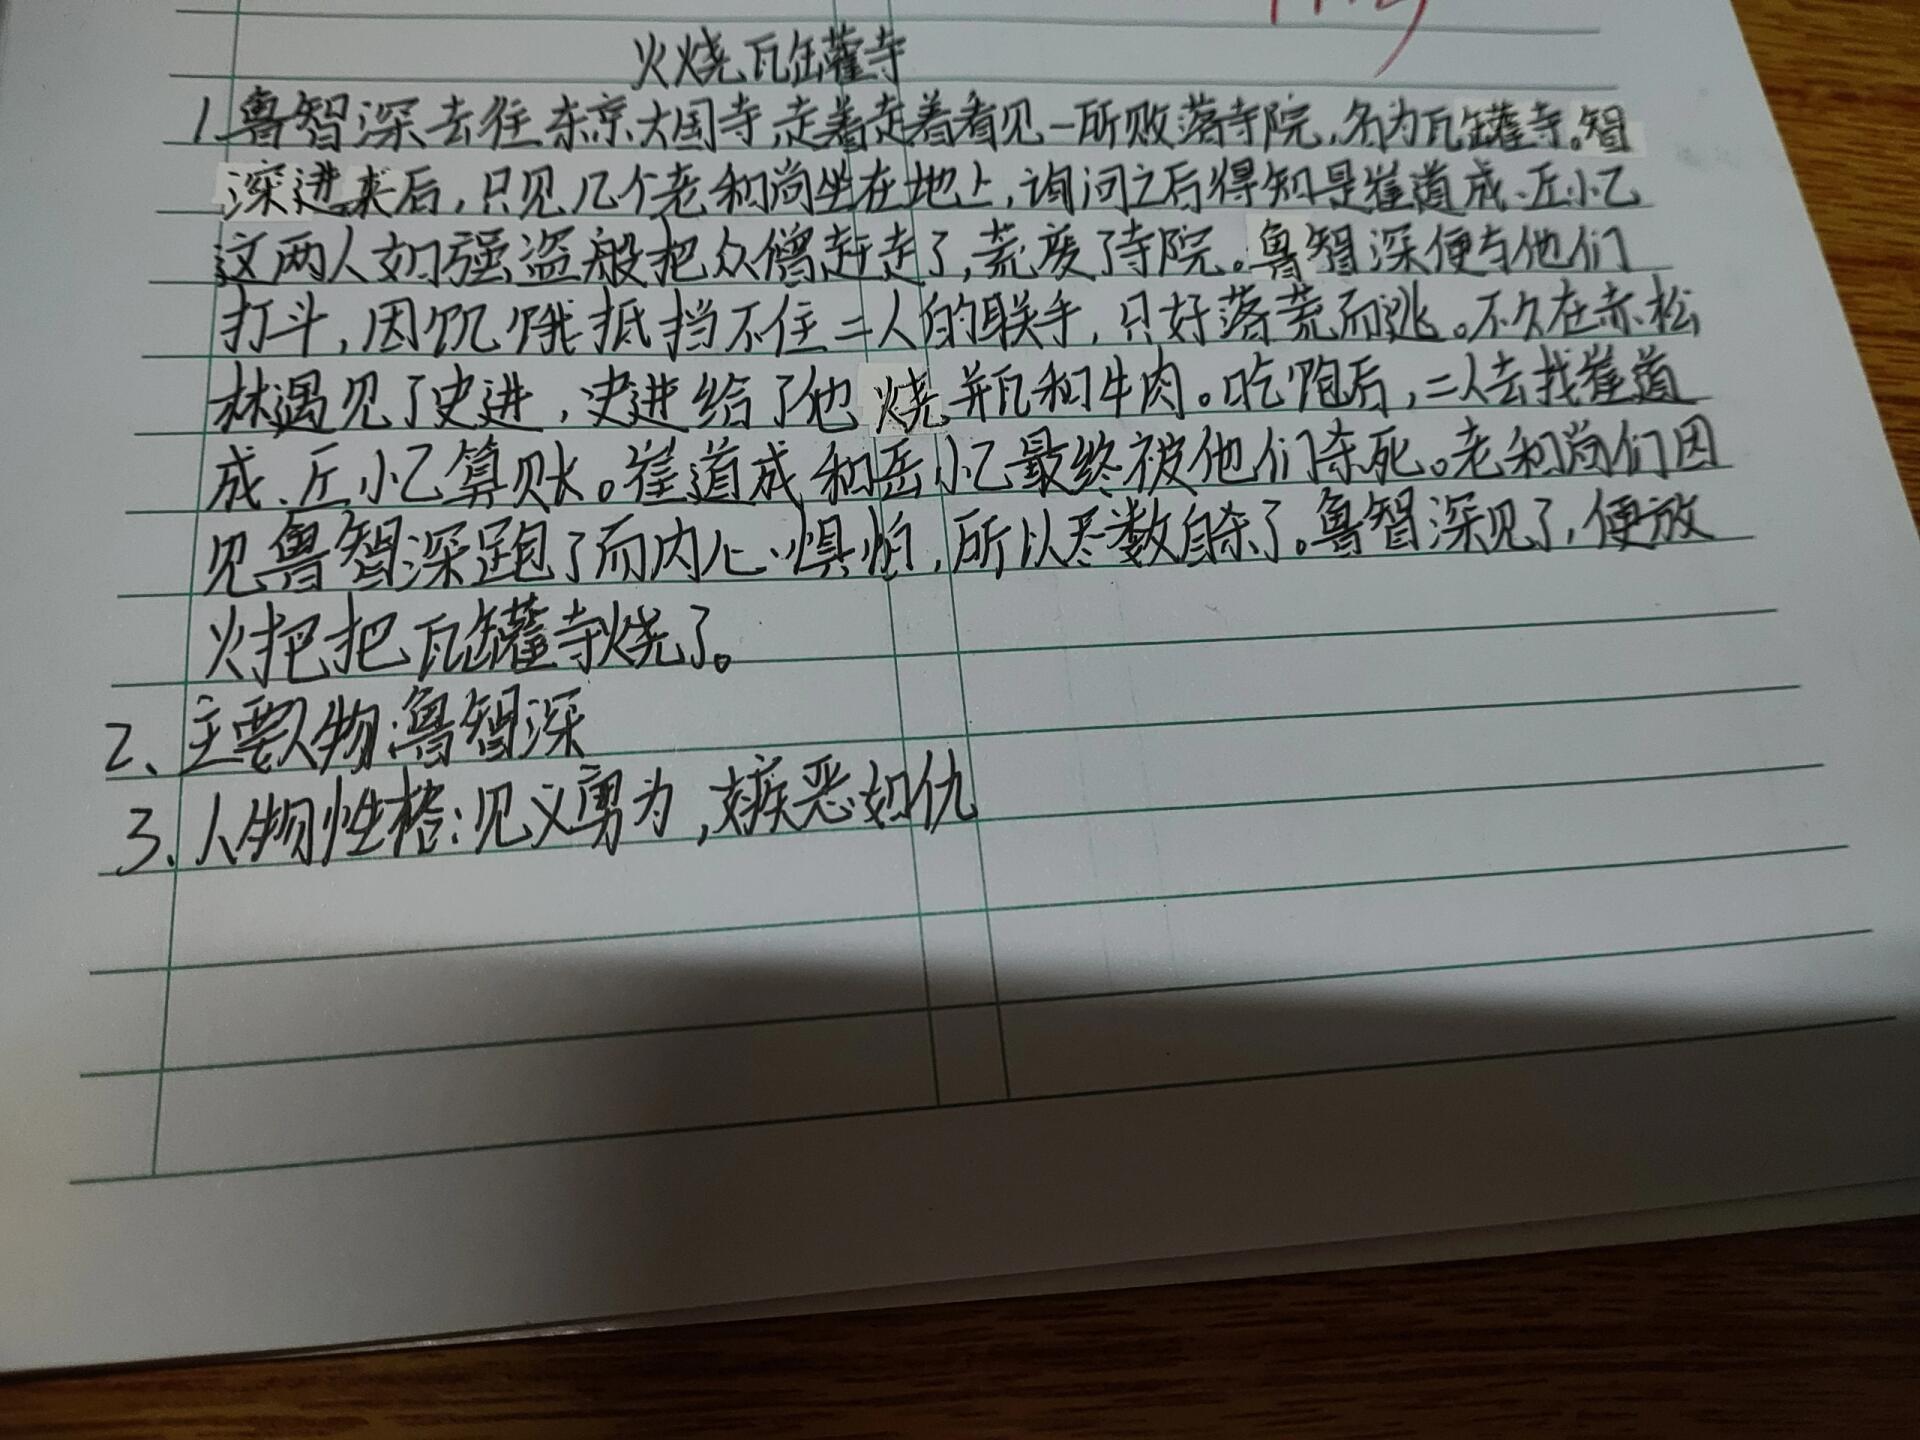 火烧瓦罐寺
1.鲁智深去往东京大国寺,走着走着看见一所败落寺院,名为瓦罐寺。智
深进来后,只见几个老和尚坐在地上,询问之后得知是崔道成、丘小乙
这两人如强盗般把众僧赶走了,荒废了寺院。鲁智深便与他们
打斗,因饥饿抵挡不住二人的联手,只好落荒而逃。不久在赤松
林遇见了史进,史进给了他烧瓶和牛肉。吃饱后,二人去找崔道
成、丘小乙算账。崔道成和岳小乙最终被他们杀死。老和尚们因
见鲁智深跑了而内心惧怕,所以尽数自杀了。鲁智深见了,便放
火把把瓦罐寺烧了。
2、主要人物:鲁智深
3.人物性格:见义勇为,嫉恶如仇